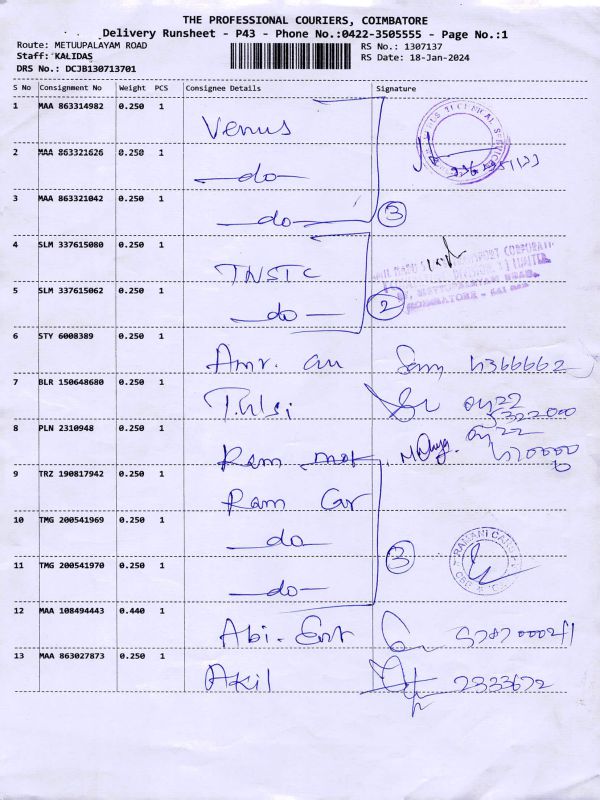 THE PROFESSIONAL COURIERS, COIMBATORE
Delivery Runsheet - P43 - Phone No.:0422-3505555 - Page No.:1
Route: METUUPALAYAM ROAD
RS No.: 1307137
Staff: KALIDAS
RS Date: 18-Jan-2024
DRS No.: DCJB130713701
S No Consignment No Weight PCS Consignee Details Signature
1 MAA 863314982 0.250 1 Venus
2 MAA 863321626 0.250 1 —do—
3 MAA 863321042 0.250 1 —do— 3
4 SLM 337615080 0.250 1 TNSTC
5 SLM 337615062 0.250 1 —do— 2
6 STY 6008389 0.250 1
7 BLR 150648680 0.250 1 Tulsi
8 PLN 2310948 0.250 1 Ram
9 TRZ 190817942 0.250 1 Ram Car
10 TMG 200541969 0.250 1 —do—
11 TMG 200541970 0.250 1 —do— 3
12 MAA 108494443 0.440 1 Abi. Ent
13 MAA 863027873 0.250 1 Akil 2333672